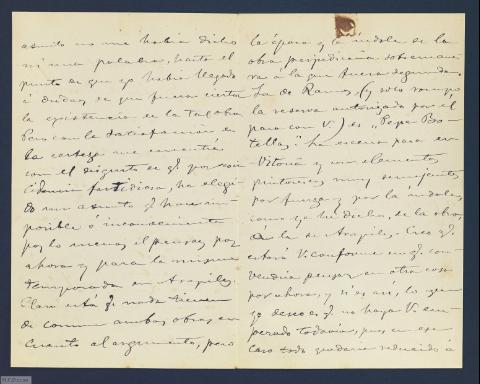 asunto no me habia dicho
ni una palabra, hasta el
punto de que yo habia llegado
á dudar, de que fuera cierta
la existencia de la
Pero con la satisfaccion de
la certeza me encontré
con el disgusto de q.º por coin
cidencia fastidiosa, ha elegi
do un asunto q.º hace im-
posible ó inconveniente
por lo menos, el pensar por
ahora y para la misma
temporada en Arapiles.
Claro está q.º nada tienen
de comun ambas obras en
cuanto al argumento, pero
la época y la índole de la
obra perjudicaria sobremane
ra á la que fuera segunda.
La de Ramos (y solo rompo
la reserva autorizado por él
para con V.) es "Pepe Bo-
tellas": la escena pasa en
Vitoria y con elementos
pintorescos muy semejantes
por fuerza y por la indole,
como ya he dicho, de la obra,
á la de Arapiles. Creo q.º
estará V. conforme en q.º con-
vendria pensar en otra cosa
por ahora, y si es asi, lo que
yo deseo es q.º no haya V. em-
pezado todavia, pues en ese
caso todo quedaria reducido á